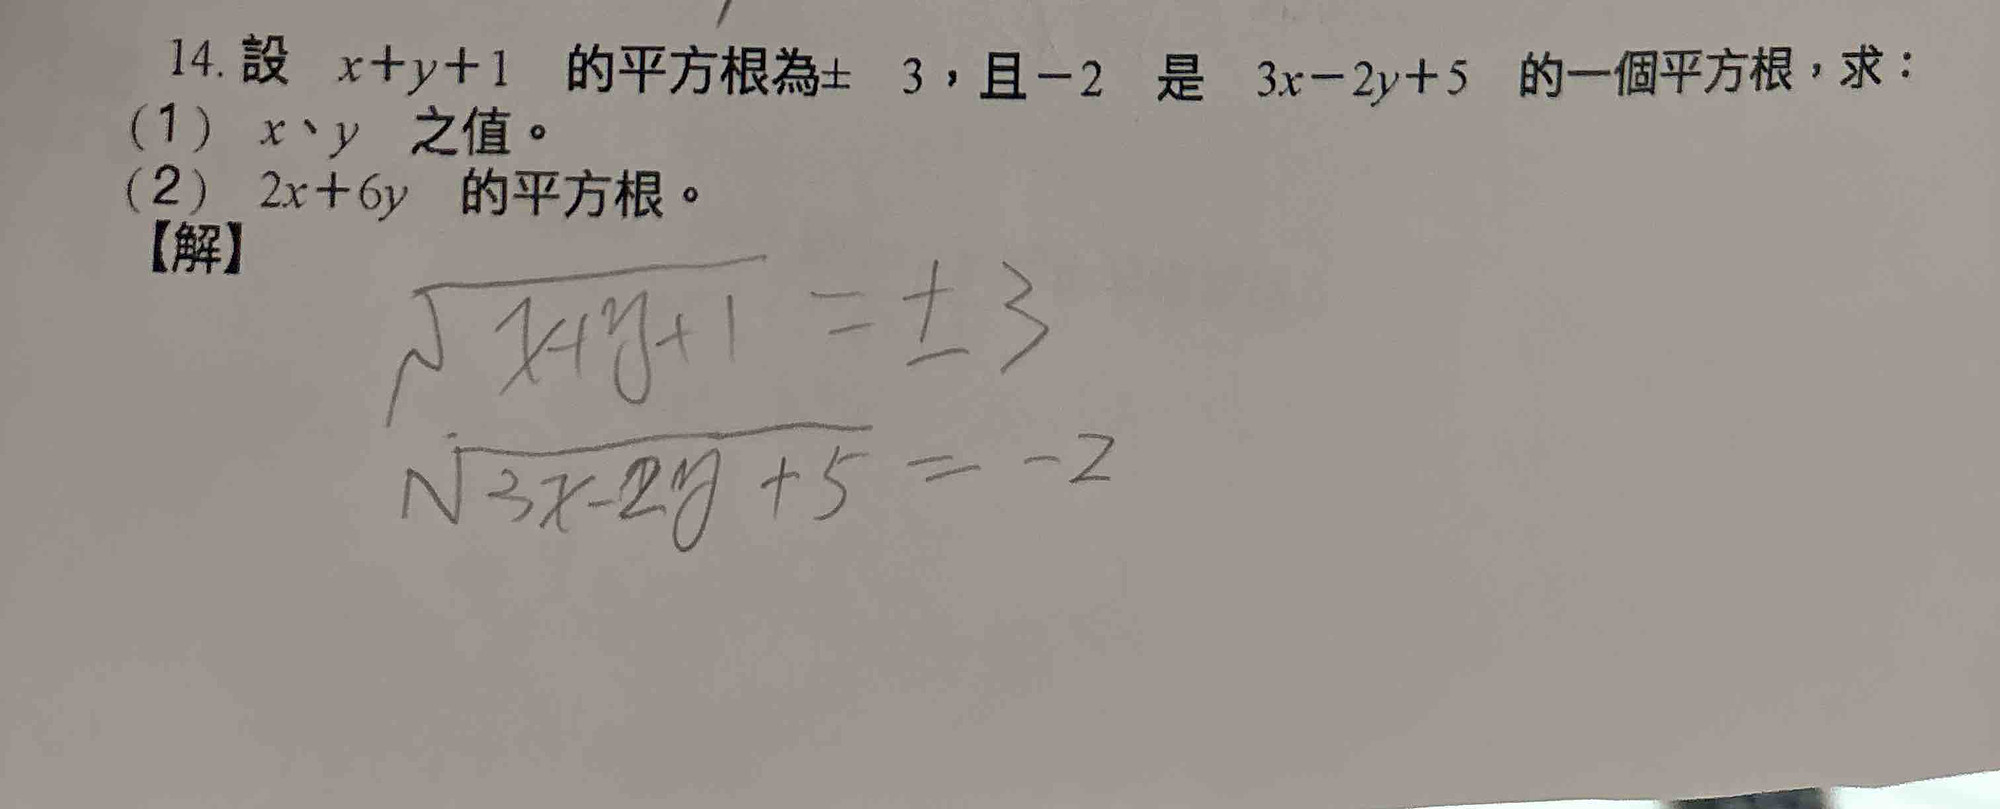 14. 設 x+y+1 的平方根為± 3，且－2 是 3x－2y+5 的一個平方根，求：
(1) x、y 之值。
(2) 2x+6y 的平方根。
【解】
√(x+y+1) = ±3
√(3x-2y+5) = -2